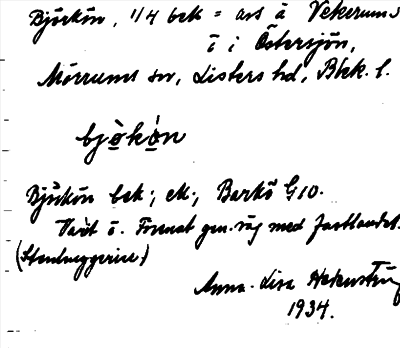 Björkön, 1/4 bek = avs å Vekerums
ö i Östersjön,
Mörrums sn, Listers hd, Blek. l.
bjö̀rkö́n
Björkön bek; ek., Barkö G10.
Varit ö. Förenat gen. väg med fastlandet.
(Stenhuggeriee)
Anna-Lisa
1934.